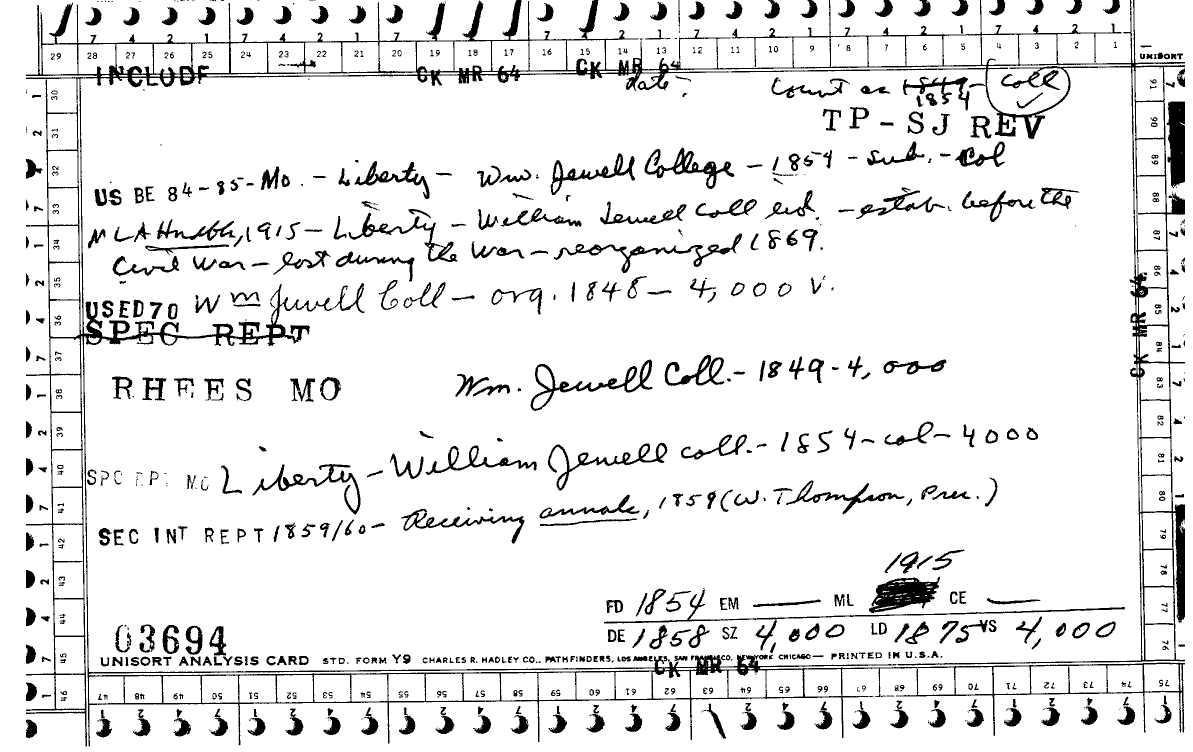 7 4 2 1 7 4 2 1 7 4 2 1 7 4 2 1 7 4 2 1 7 4 2 1 7 4 2 1
29 28 27 26 25 24 23 22 21 20 19 18 17 16 15 14 13 12 11 10 9 8 7 6 5 4 3 2 1
UNISORT
INCLUDE CK MR 64 CK MR 64
date: Count as 1849- Coll
1854
TP-SJ REV
US BE 84-85-Mo. - Liberty - Wm. Jewell College - 1854 - sub. - Col
MLA Hndbk, 1915 - Liberty - William Jewell Coll - estab. before the
Civil War - lost during the War - reorganized 1869.
USED 70 Wm Jewell Coll - org. 1848 - 4,000 V.
SPEC REPT
RHEES MO Wm. Jewell Coll. - 1849 - 4,000
SPC RPT MO Liberty - William Jewell coll. - 1854 - col - 4000
SEC INT REPT 1859/60 - Receiving annals, 1859 (W. Thompson, Pres.)
1915
FD 1854 EM — ML CE —
DE 1858 SZ 4,000 LD 1875 VS 4,000
03694
UNISORT ANALYSIS CARD STD. FORM Y9 CHARLES R. HADLEY CO., PATHFINDERS, LOS ANGELES, SAN FRANCISCO, NEW YORK, CHICAGO — PRINTED IN U.S.A.
CK MR 64
CK MR 64
47 48 49 50 51 52 53 54 55 56 57 58 59 60 61 62 63 64 65 66 67 68 69 70 71 72 73 74 75